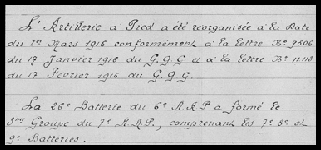 L'Artillerie à Pied a été réorganisée à la Date
du 1er Mars 1916 conformément à la lettre No 7506
du 1er Janvier 1916 du G.Q.G et à la lettre No
du 17 Février 1916 du G.Q.G.
La 26e Batterie du 6e R.A.P a formé le
3me Groupe du 7e R.A.P., comprenant les 7e 8e et
9e Batteries.